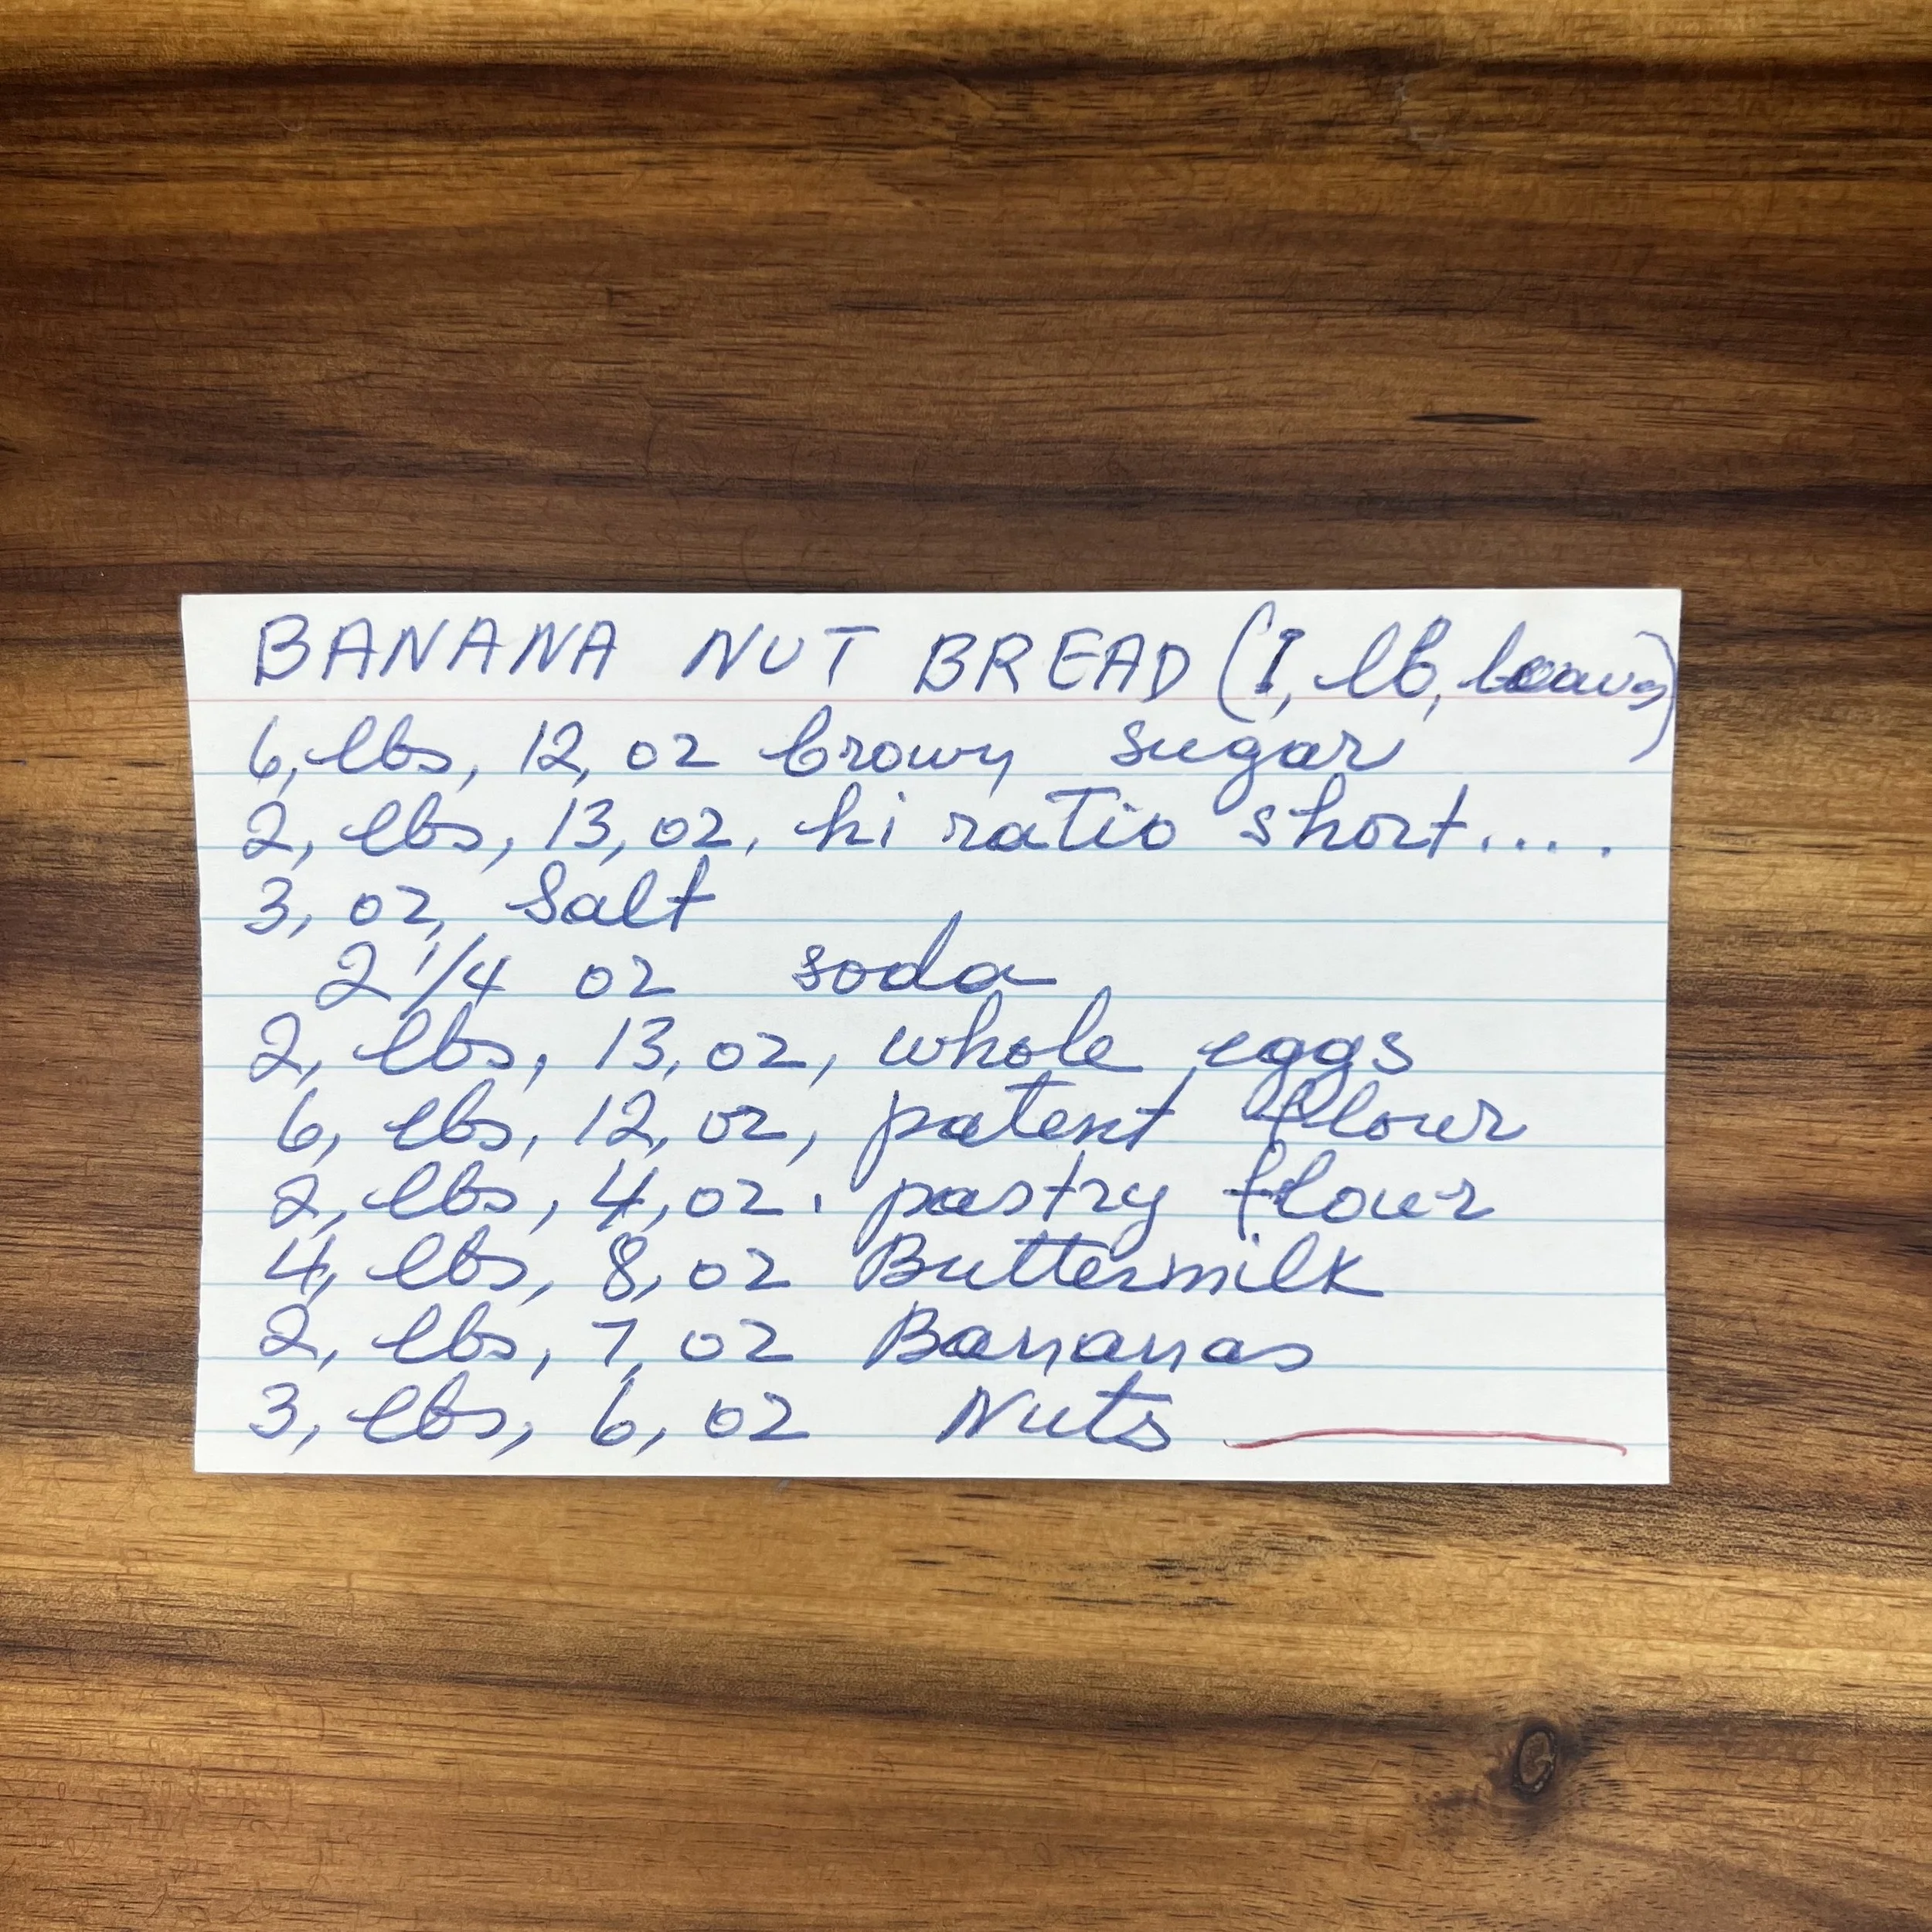 BANANA NUT BREAD (I, lb, loaves)
6, lbs, 12, oz brown sugar
2, lbs, 13, oz, hi ratio short.....
3, oz, Salt
2 1/4 oz soda
2, lbs, 13, oz, whole eggs
6, lbs, 12, oz, patent flour
2, lbs, 4, oz. pastry flour
4, lbs, 8, oz Buttermilk
2, lbs, 7, oz Bananas
3, lbs, 6, oz Nuts